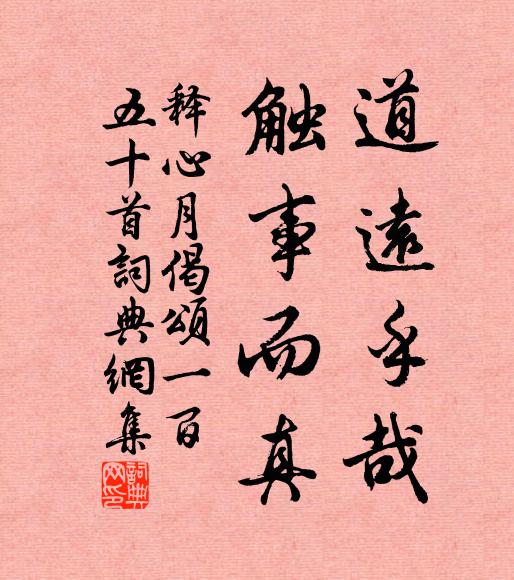 道遠乎哉
触事而真
释心月偈頌一百
五十首詞典網集
詞典
网印